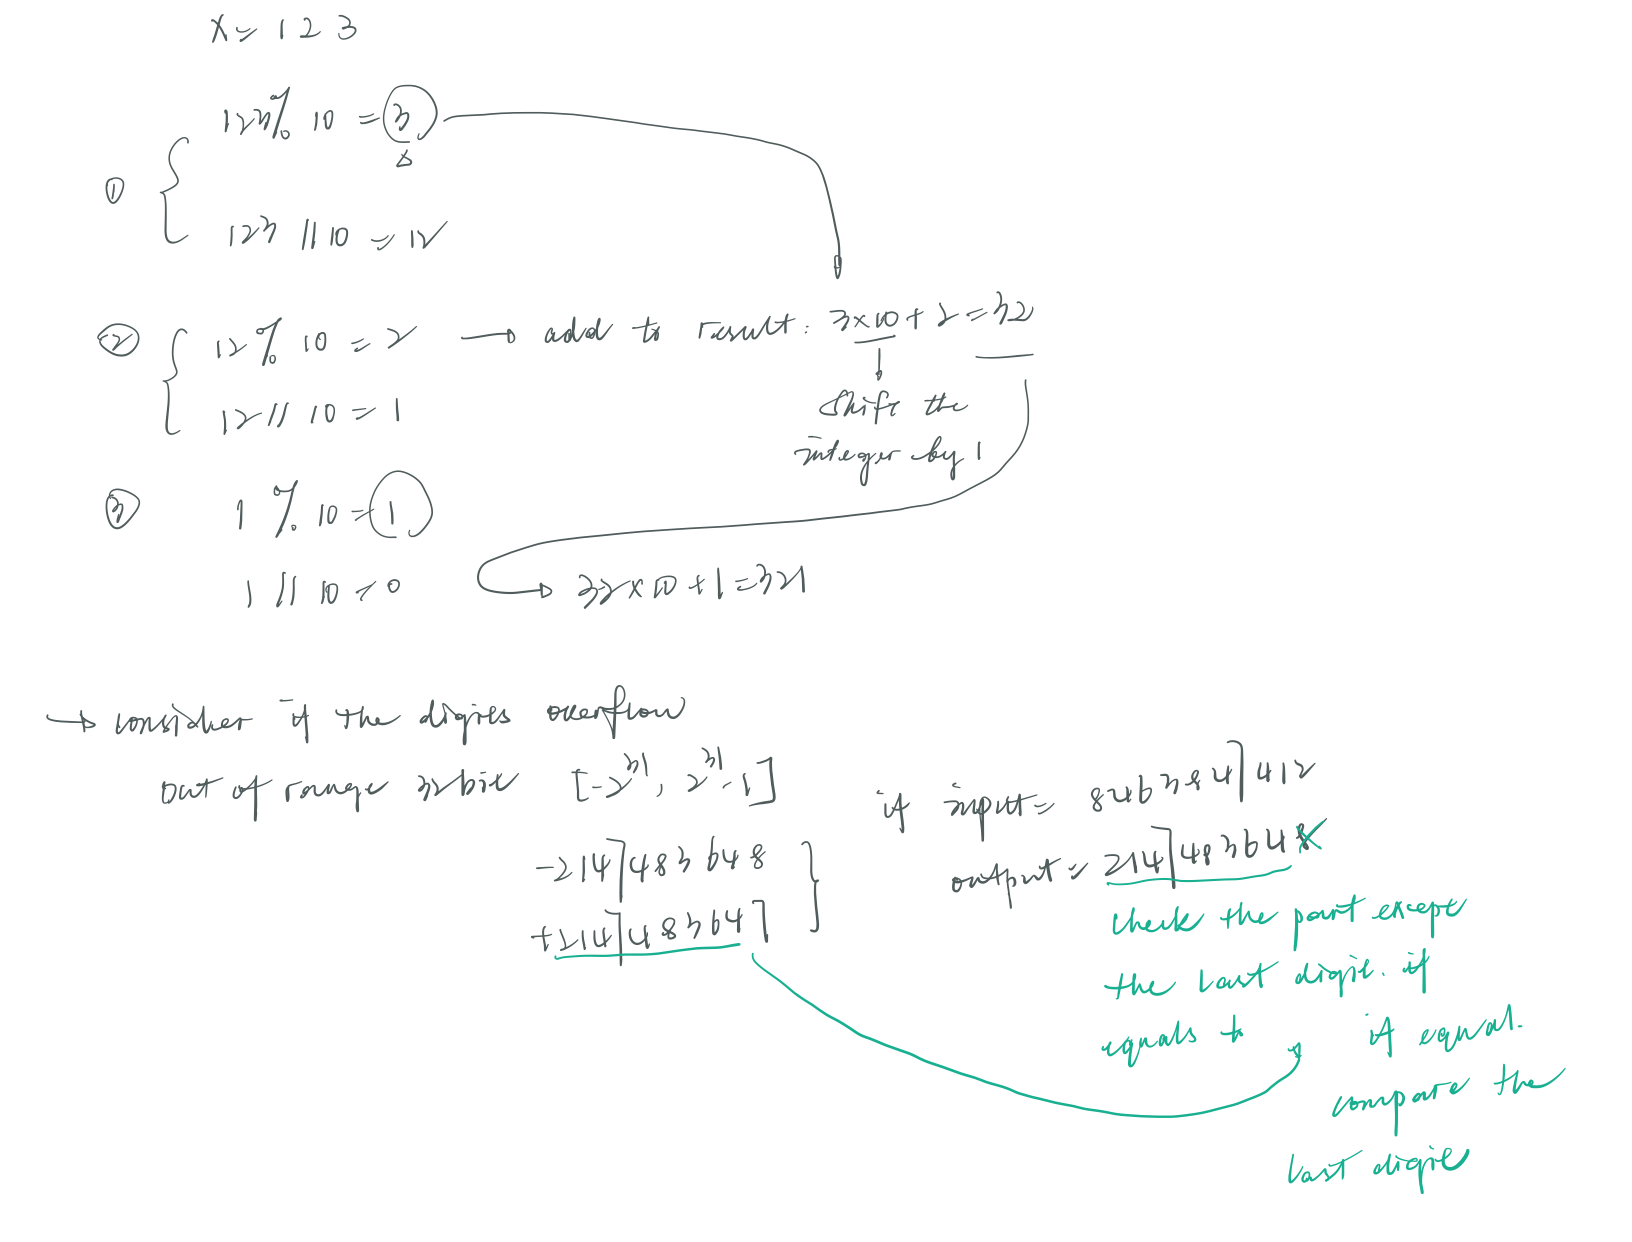 x = 1 2 3
123 % 10 = 3
①
123 // 10 = 12
② 12 % 10 = 2 → add to result: 3×10 + 2 = 32
12 // 10 = 1
shift the
integer by 1
③ 1 % 10 = 1
1 // 10 = 0
32×10 + 1 = 321
→ consider if the digits overflow
out of range 32bit [-2^31, 2^31-1]
-2147483648
+2147483647
if input = 8463847412
output = 2147483648
check the part except
the last digit. if
equals to
if equal.
compare the
last digit